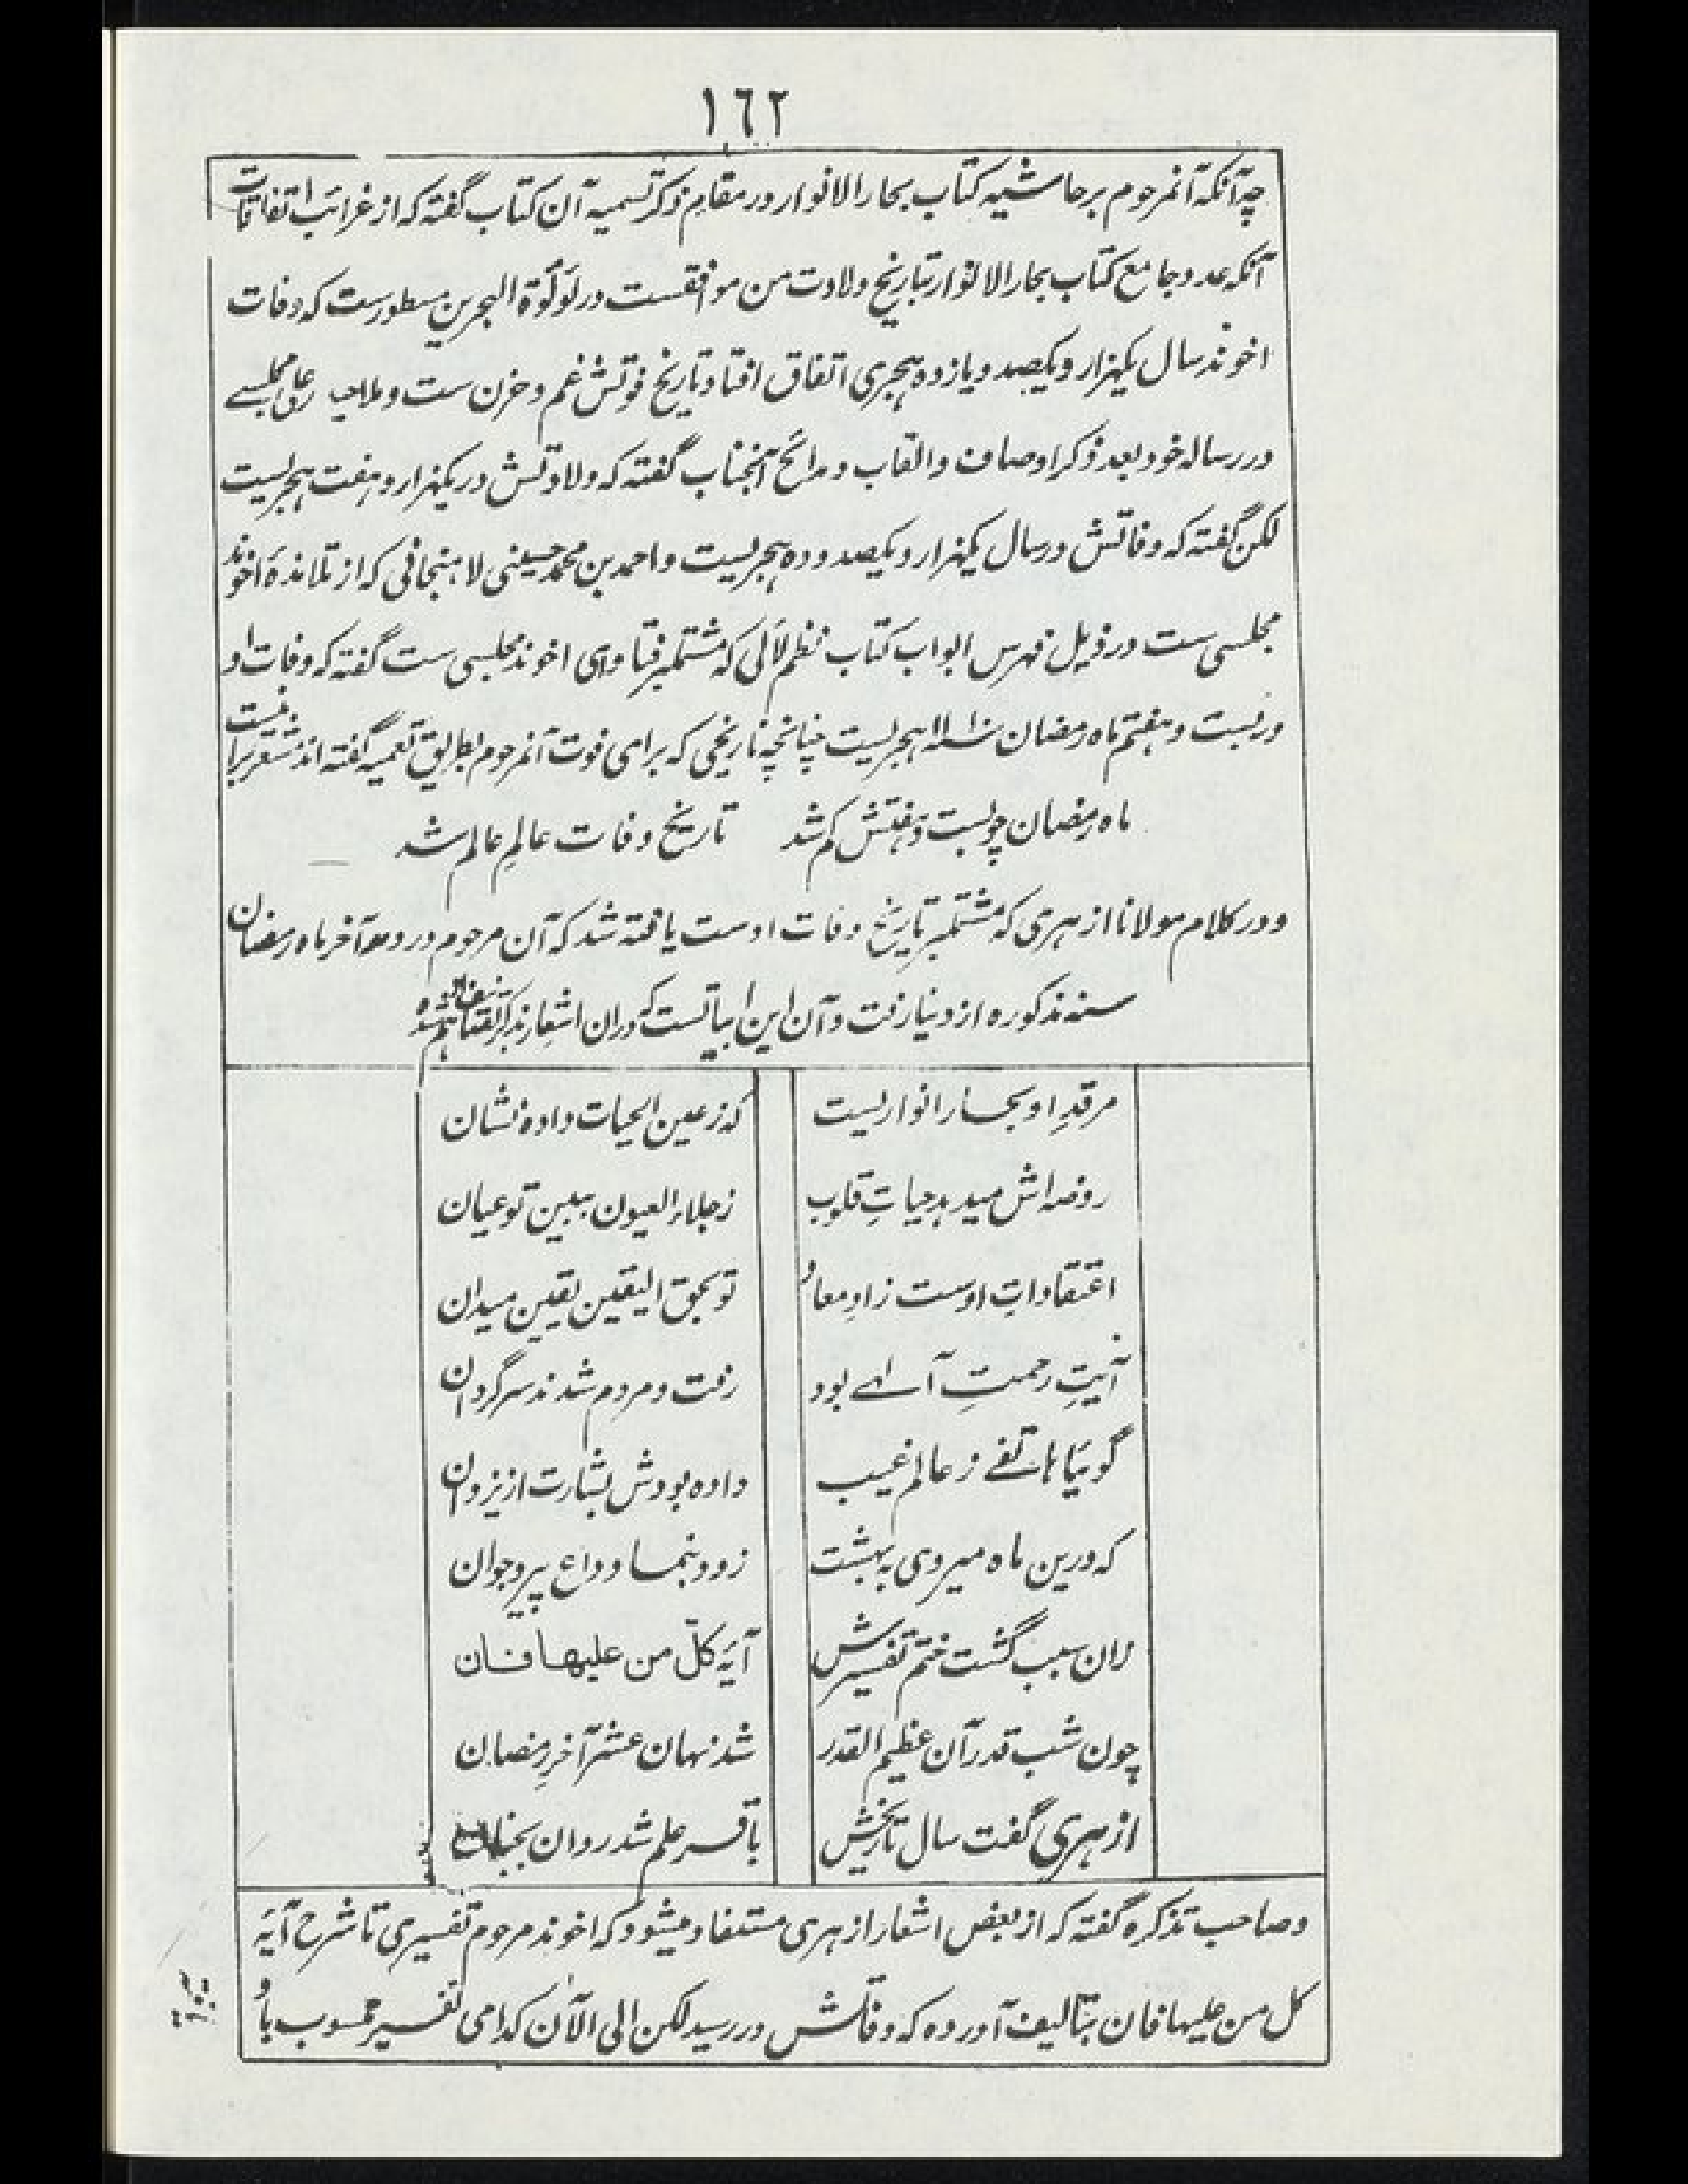 ١٦٢
چه آنکه آنمرحوم بر حاشیه کتاب بحار الانوار در مقام ذکر تسمیه آن کتاب گفته که از غرائب اتفاقات
آنکه عدد جامع کتاب بحار الانوار بتاریخ ولادت من موافقست در لؤلؤة البحرین مسطورست که وفات
اخوند سال یکهزار و یکصد و یازده هجری اتفاق افتاد تاریخ فوتش غم و حزن ست و مجلسے
در رساله خود بعد ذکر اوصاف و القاب و مدائح آنجناب گفته که ولادتش در یکهزار و هفت هجریست
لکن گفته که وفاتش در سال یکهزار و یکصد و ده هجریست و احمد بن محمد حسینی لاهنجانی که از تلامذهٔ اخوند
مجلسی ست در ذیل فهرس ابواب کتاب نظم لآلی که مشتملبر فتاوای اخوند مجلسی ست گفته که وفات او
در بست و هفتم ماه رمضان هجریست چنانچه تاریخی که برای فوت آنمرحوم بطریق تعمیه گفته اند مشعر برانست
ماه رمضان چو بست و هفتش کم شد تاریخ وفات عالمِ عالم شد
و در کلام مولانا ازهری که مشتملبر تاریخ وفات اوست یافته شد که آن مرحوم در دهه آخر ماه رمضان
سنه مذکوره از دنیا رفت و آن این ابیاتست که دران اشعار بذکر تصانیفش هم شده
مرقدِ او بحار انواریست که ز عین الحیات داده نشان
روضه اش میدهد حیاتِ قلوب ز جلاء العیون ببین تو عیان
اعتقاداتِ اوست زادِ معاد تو بحق الیقین یقین میدان
آیتِ رحمتِ آلهے بود رفت و مردم شدند سرگردان
گوئیا هاتفے ز عالم غیب داده بودش بشارت از یزدان
که درین ماه میروی به بهشت زود بنما وداع پیر و جوان
زان سبب گشت ختم تفسیرش آیهٔ کلّ من علیها فان
چون شب قدر آن عظیم القدر شد نهان عشر آخرِ رمضان
ازهری گفت سال تاریخش باقر علم شد روان بجنان
و صاحب تذکره گفته که از بعض اشعار ازهری مستفاد میشود که اخوند مرحوم تفسیری تا شرح آیهٔ
کل من علیها فان بتالیف آورده که وفاتش در رسید لکن الی الآن کدامی تفسیر محسوب باو